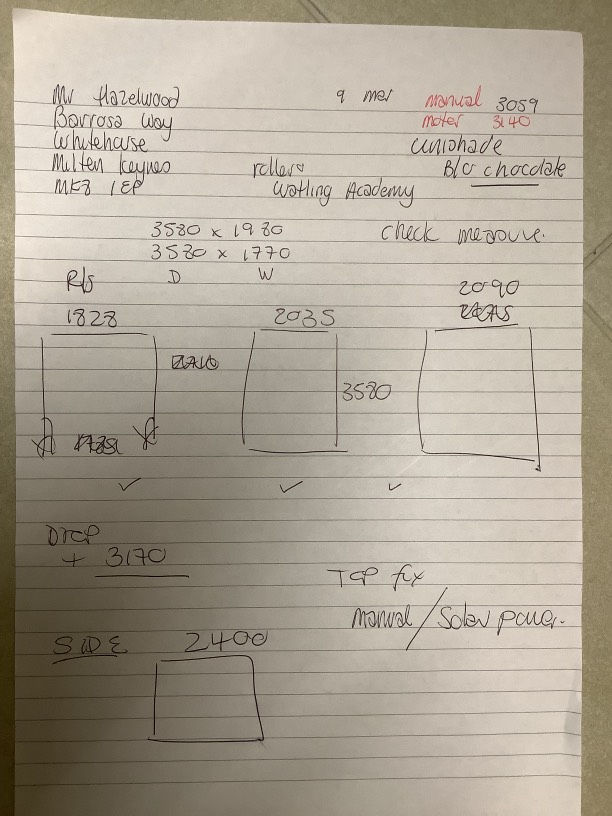 Mr Hazelwood
9 mer
manual 3059
Barrosa Way
moter 3140
Whitehouse
unishade
Milten Keynes
rollers
B/O chocolate
MK8 1EP
Watling Academy
3580 x 1980
check measure.
3580 x 1770
R/S
D W
2090
1828
2035
3580
✓ ✓ ✓
Drop
+ 3170
TOP fix
manual / Solar power.
SIDE 2400